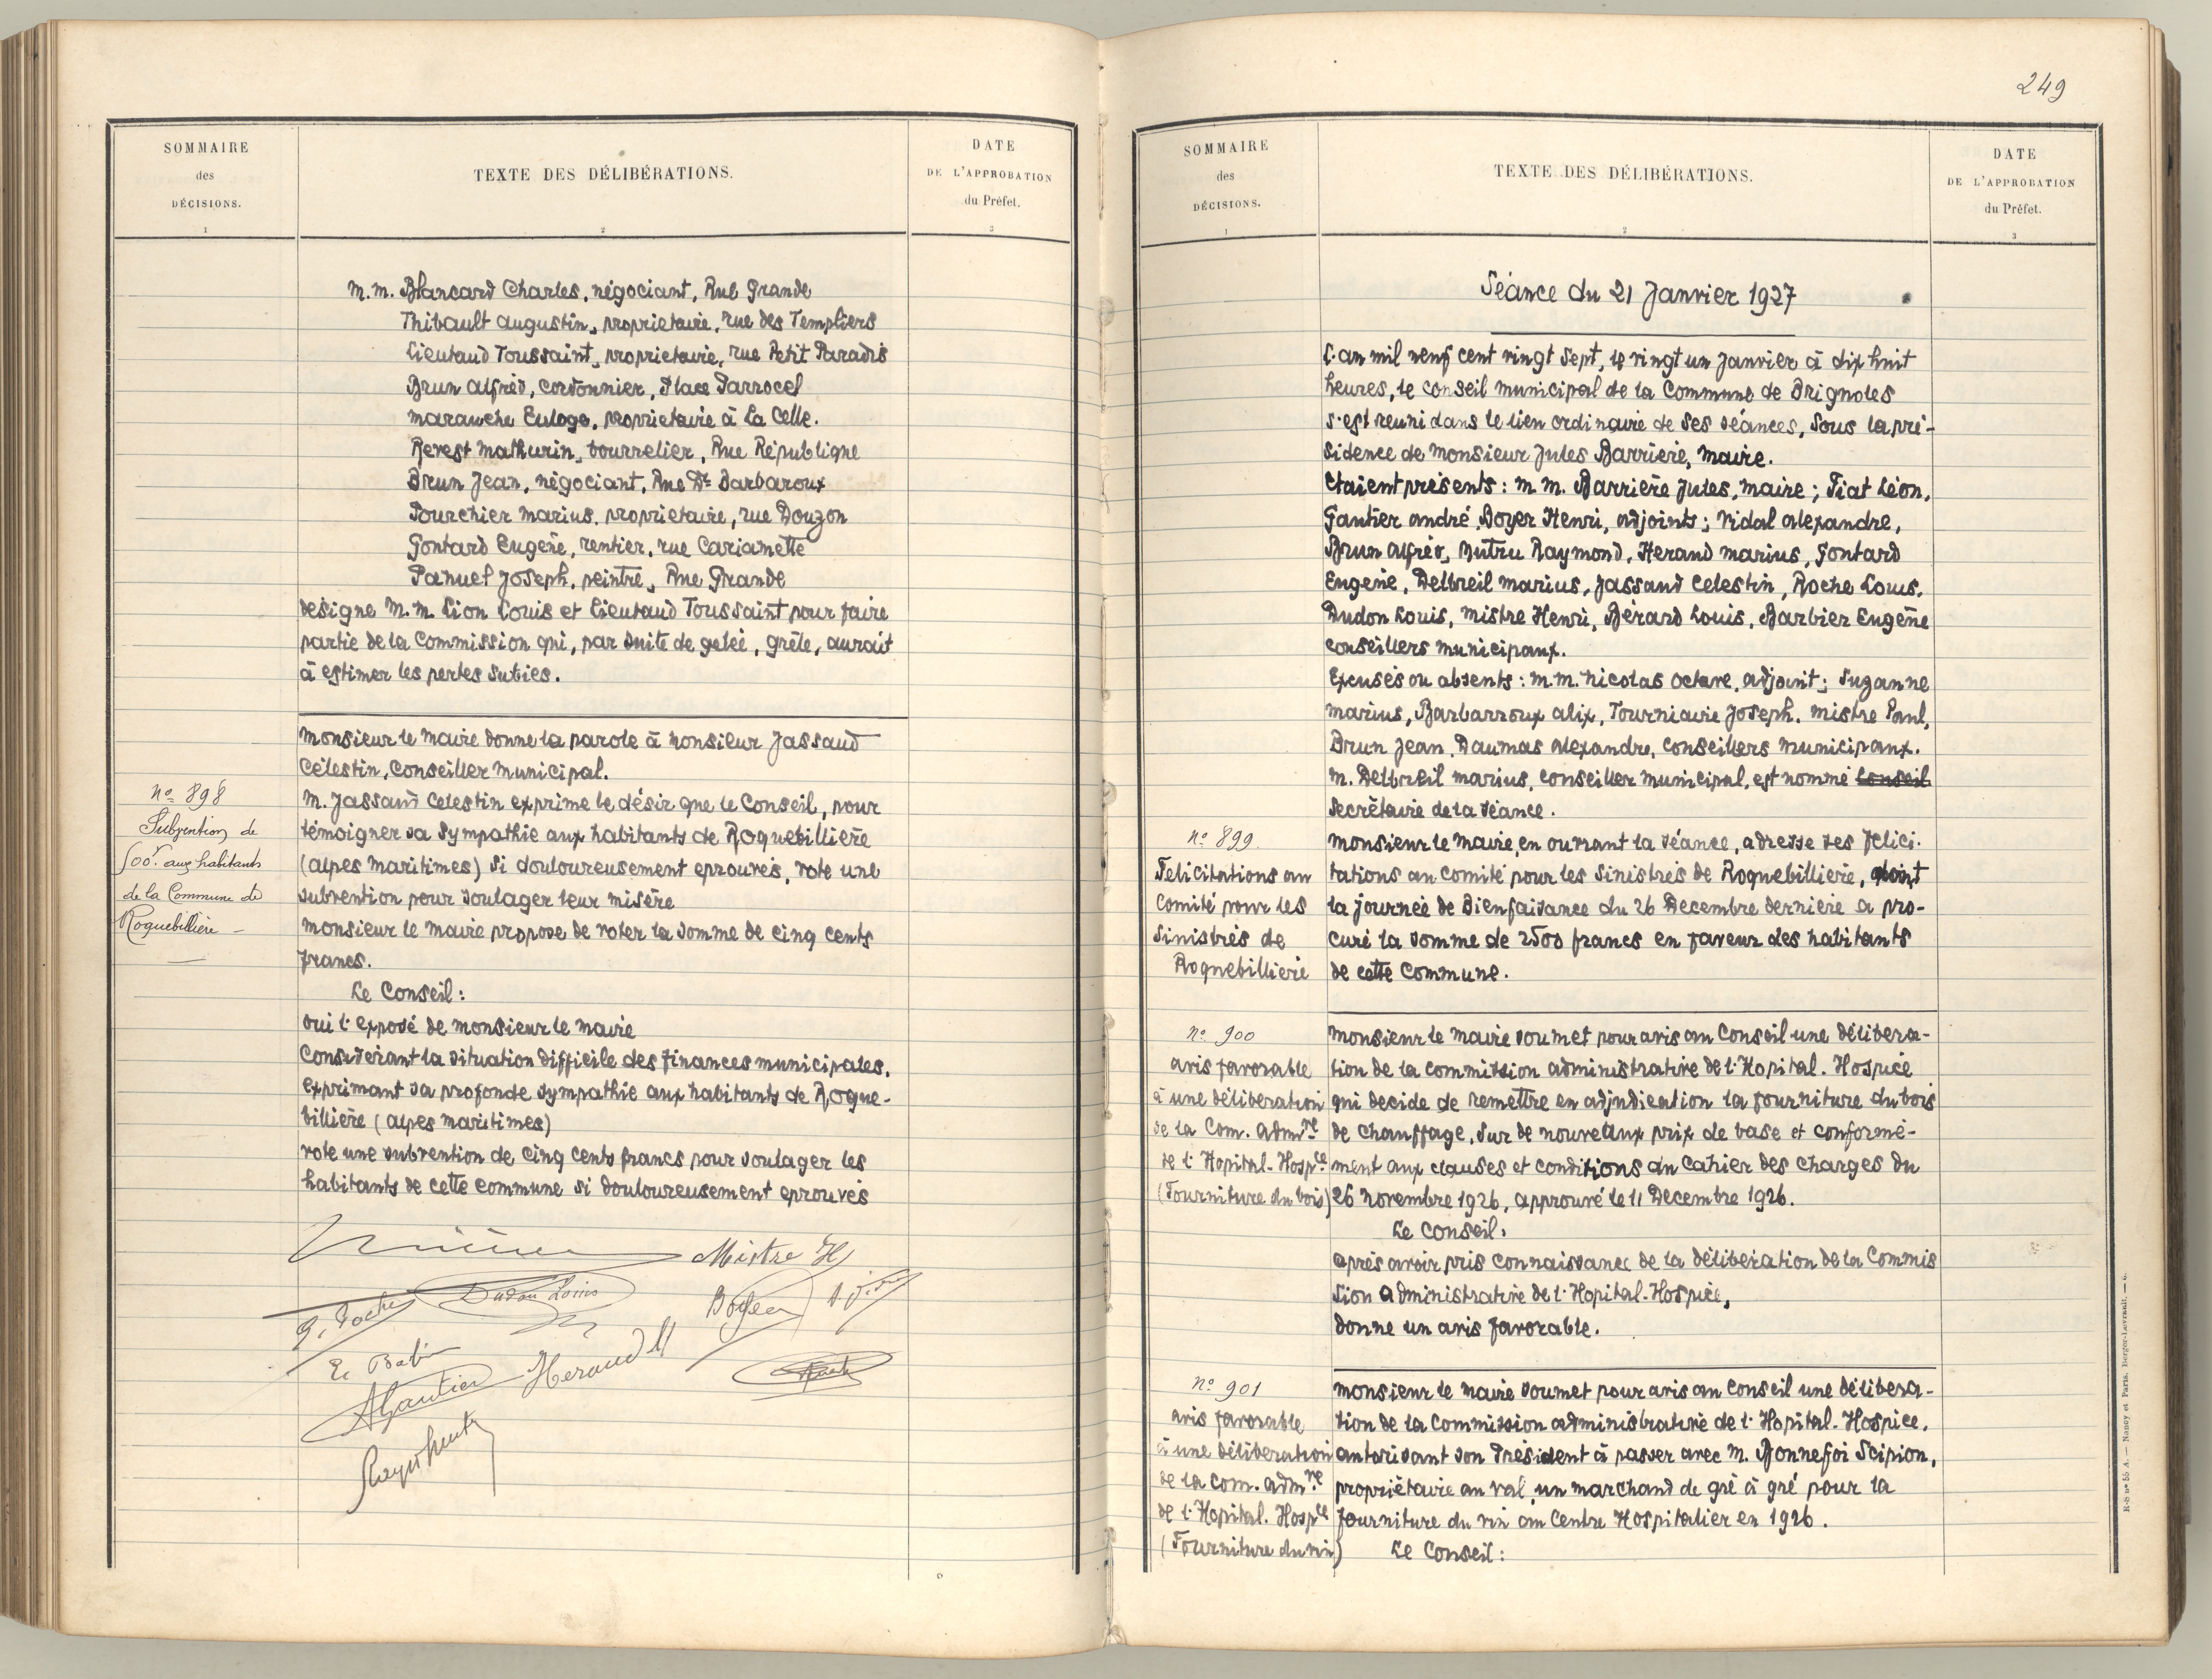 SOMMAIRE
des
DÉCISIONS.
1
TEXTE DES DÉLIBÉRATIONS.
2
DATE
DE L'APPROBATION
du Préfet.
3
M.M. Blancard Charles, négociant, Rue Grande
Thibault Augustin, proprietaire, rue des Templiers
Lieutaud Toussaint, proprietaire, rue Petit Paradis
Brun Alfred, cordonnier, Place Parrocel
Maranche Euloge, proprietaire à La Celle.
Revest Mathurin, bourrelier, Rue République
Brun Jean, négociant, Rue Dr Barbaroux
Pourchier Marius, proprietaire, rue Douzon
Gontard Eugène, rentier, rue Cariamette
Panuel Joseph, peintre, Rue Grande
designe M.M. Lion Louis et Lieutaud Toussaint pour faire
partie de la Commission qui, par suite de gelée, grêle, aurait
à estimer les pertes subies.
Monsieur le Maire donne la parole à Monsieur Jassaud
Célestin, Conseiller municipal.
No 898
Subvention de
500f. aux habitants
de la Commune de
Roquebillière –
M. Jassaud Celestin exprime le désir que le Conseil, pour
témoigner sa sympathie aux habitants de Roquebillière
(Alpes Maritimes) si douloureusement eprouvés, vote une
subvention pour soulager leur misère
Monsieur le Maire propose de voter la somme de cinq cents
francs.
Le Conseil:
Oui l'exposé de Monsieur le Maire
Considerant la situation difficile des finances municipales,
Exprimant sa profonde sympathie aux habitants de Roque-
billière (Alpes Maritimes)
vote une subvention de cinq cents francs pour soulager les
habitants de cette commune si douloureusement eprouvés
Mistre H
Dudon Louis
Boyer
AGautier
Heraud M
249
SOMMAIRE
des
DÉCISIONS.
1
TEXTE DES DÉLIBÉRATIONS.
2
DATE
DE L'APPROBATION
du Préfet.
3
Séance du 21 Janvier 1927
L'an mil neuf cent vingt sept, le vingt un janvier à dix huit
heures, le conseil municipal de la Commune de Brignoles
s'est reuni dans le lieu ordinaire de ses séances, sous la pré-
sidence de Monsieur Jules Barrière, Maire.
Etaient présents: M.M. Barrière Jules, Maire; Fiat Léon,
Gautier André, Boyer Henri, adjoints; Vidal Alexandre,
Brun Alfred, Dutru Raymond, Heraud Marius, Gontard
Eugène, Delbreil Marius, Jassaud Celestin, Roche Louis,
Dudon Louis, Mistre Henri, Bérard Louis, Barbier Eugène
conseillers municipaux.
Excusés ou absents: M.M. Nicolas Octave, adjoint; Suzanne
Marius, Barbarroux Alix, Tourniaire Joseph, Mistre Paul,
Brun Jean, Daumas Alexandre, Conseillers municipaux.
M. Delbreil Marius, conseiller municipal, est nommé Conseil
Secrétaire de la séance.
No 899
Felicitations au
Comité pour les
Sinistrés de
Roquebillière
Monsieur le Maire, en ouvrant la séance, adresse ses felici-
tations au comité pour les sinistrés de Roquebillière, dont
la journée de Bienfaisance du 26 Decembre dernière a pro-
curé la somme de 2500 francs en faveur des habitants
de cette commune.
No 900
Avis favorable
à une déliberation
de la Com. Admre
de l'Hopital-Hospce
(Fourniture du bois)
Monsieur le Maire soumet pour avis au Conseil une délibera-
tion de la Commission administrative de l'Hopital-Hospice
qui decide de remettre en adjudication la fourniture du bois
de chauffage, sur de nouveaux prix de base et conformé-
ment aux clauses et conditions du Cahier des charges du
26 Novembre 1926, approuvé le 11 Decembre 1926.
Le Conseil:
après avoir pris connaissance de la déliberation de la Commis
sion administrative de l'Hopital-Hospice,
donne un avis favorable.
No 901
Avis favorable
à une déliberation
de la Com. Admre
de l'Hopital-Hospce
(Fourniture du vin)
Monsieur le Maire soumet pour avis au Conseil une délibera-
tion de la Commission administrative de l'Hopital-Hospice,
autorisant son Président à passer avec M. Bonnefoi Scipion,
propriétaire au Val, un marchand de gré à gré pour la
fourniture du vin au Centre Hospitalier en 1926.
Le Conseil:
R-S no 55 A. — Nancy et Paris. Berger-Levrault. — 6.